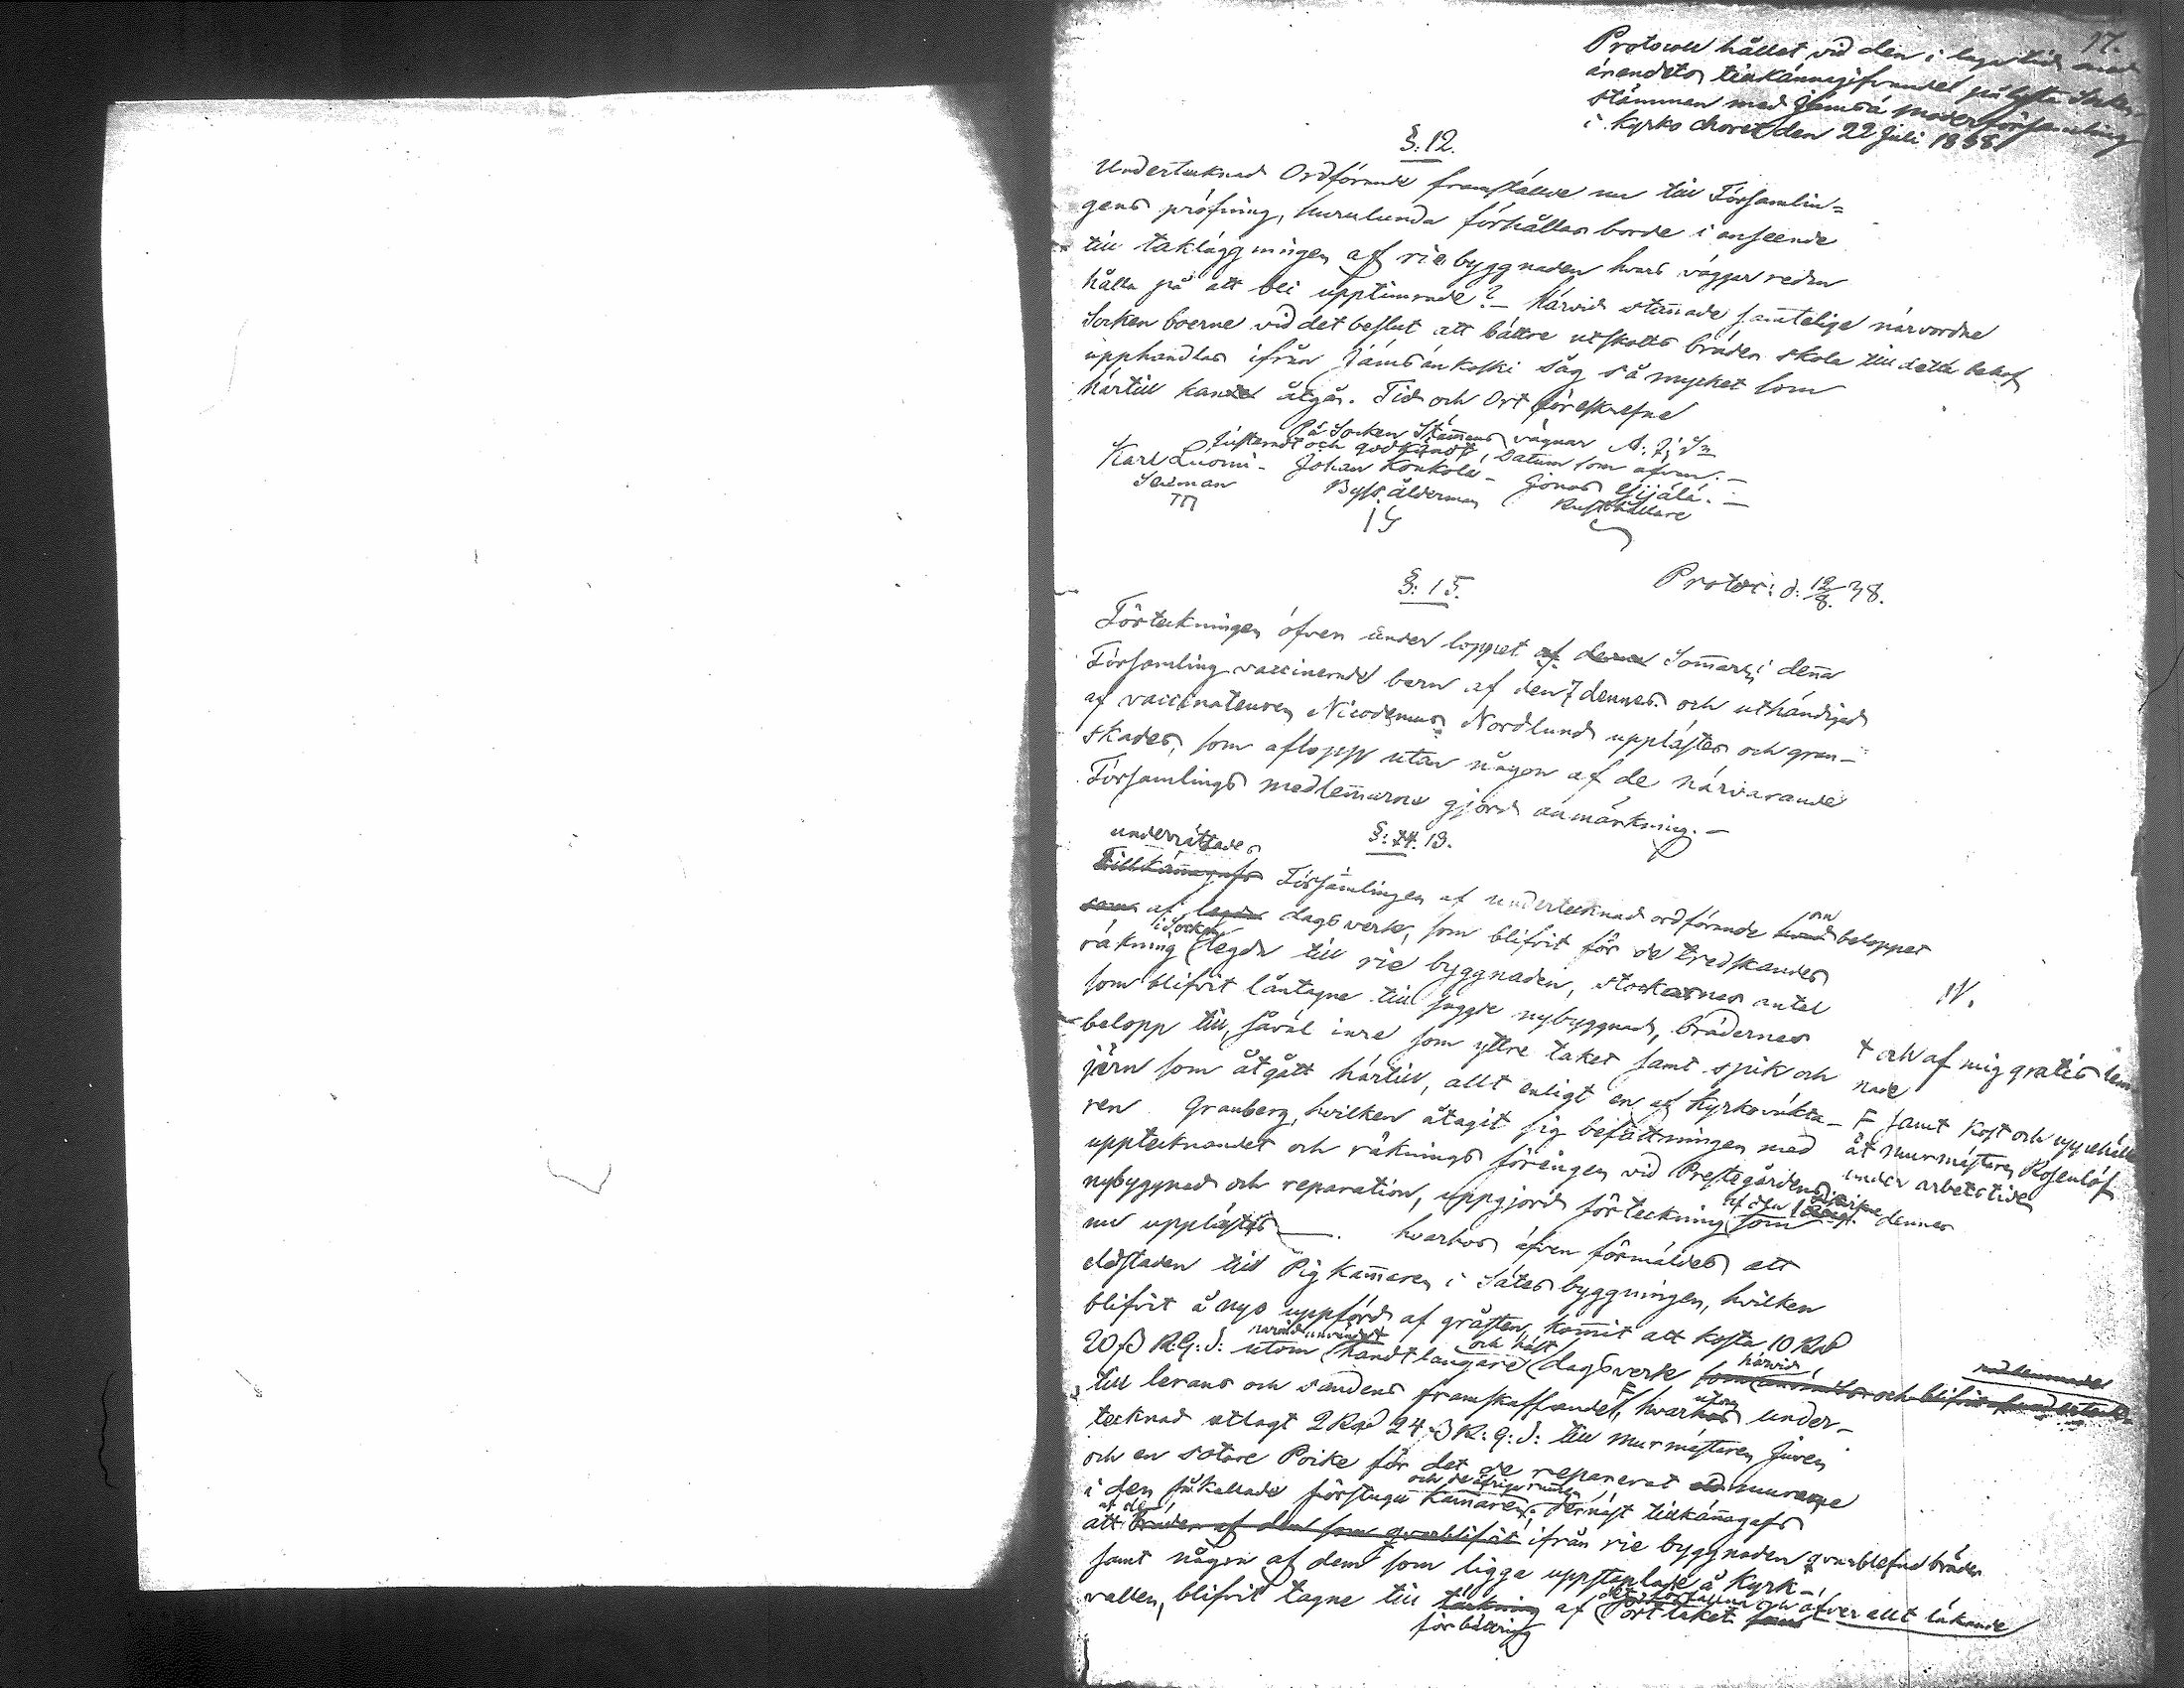 17.
Protocoll hållet vid den i laga tid med
ärendets tillkännagifvande pålysta Socken
stämman med Jämsä moderförsamling
i Kyrko choret den 22 Juli 1838
§: 12.
Undertecknad Ordförande framställde nu till Församlin=
gens pröfning, hurulunda förhållas borde i anseende
till takläggningen af rie byggnaden hvars väggar redan
hålla på att bli upptimrade? - Härvid stannade samtelige närvordne
Sockenboerne vid det beslut att bättre utskotts bräder skola till detta behof
upphandlas ifrån Jämsänkoski såg så mycket som
härtill kan åtgår. Tid och Ort föreskrefne
På Socken Stämmans vägnar
Justeradt och godkändt, Datum som ofvan. -
Karl Luomi - Johan Konkola - Jonas Eijälä. -
Byss. ålderman Rusthållare
§: 15.
Protoc: d: 12/8. 38.
Förteckningen öfver under loppet af denna Sommar i denna
Församling vaccinerade barn af den 7 dennes och uthändigad
af vaccinateuren Nicodemus Nordlund upplästes och gran-
skades, som aflopp utan någon af de närvarande
Församlings medlemmarne gjord anmärkning. -
§: 14. 13.
underrättades
Tillkännagafs Församlingen af undertecknad ordförande om beloppet
af legda dagsverk, som blifvit för de tredskandes
räkning i Socken legda till rie byggnaden, stockarnes antal
som blifvit låntagne till sagde nybyggnad, brädernes
belopp till, såväl inre som yttre taket samt spik och
järn som åtgått härtill, allt enligt en af Kyrkovakta-
ren Granberg, hvilken åtagit sig befattningen med
upptecknandet och räknings föringen vid Prestegårdens
nybyggnad och reparation, uppgjord förteckning som af den dennes
nu upplästes . hvarhos äfven förmäldes att
eldstaden till Pig Kammaren i Sätesbyggningen, hvilken
blifvit å nyo uppförd af gråsten, kommit att kosta 10 Rub
20 ß R.G.S: utom handtlangare och häst dagsverk
till lerans och sandens framskaffandet, F hvarutom under-
tecknad utlagt 2 Rub 24 ß R: G: S: till murmästaren Juven
och en sotare Poike för det de reparerat murarne
i den såkallade förstugu Kammaren; dernäst tillkännagafs
att Bräder af dem som qvarblifvit ifrån rie byggnaden qvarblefne bräder
samt någon af dem som ligga uppstaplade å Kyrk-
vallen, blifvit tagne till täckning af Portlaket
förbättring öfver allt läkande
N.
+ och af mig gratis lem
nade
F samt Kost och uppehälle
åt murmästaren Rosenlöf
under arbetstiden